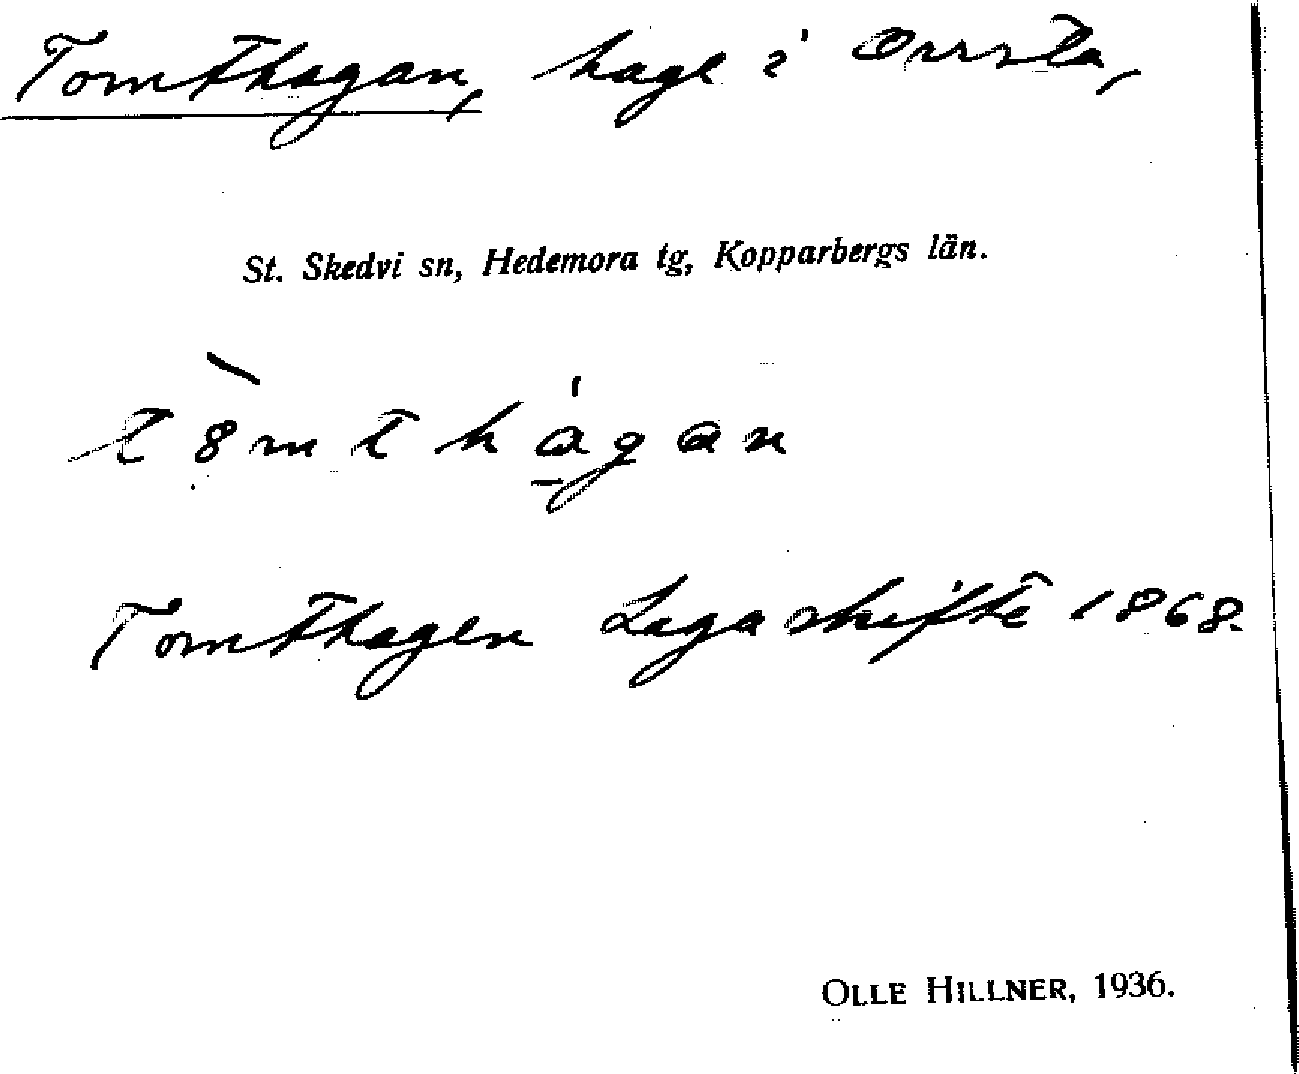 Tomthagan, hage i Orrsta,
St. Skedvi sn, Hedemora tg, Kopparbergs län.
t8̀mt hágan
Tomthagen Laga skifte 1868.
OLLE HILLNER, 1936.